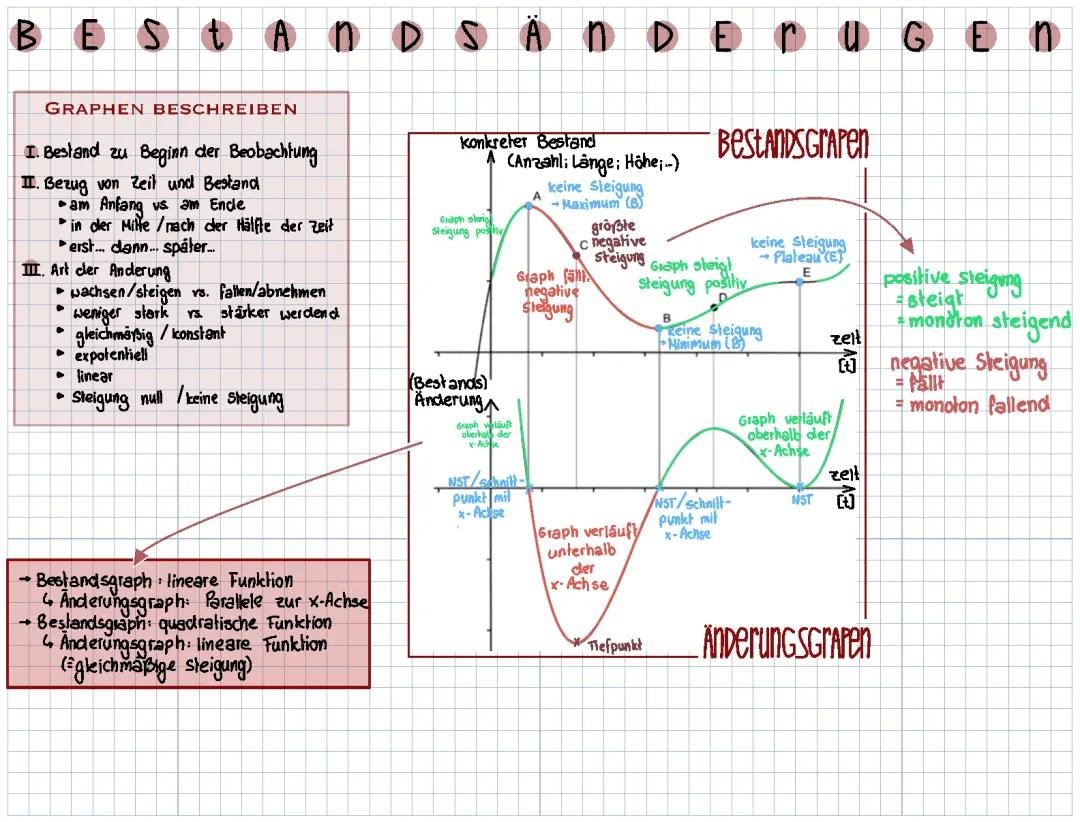 BEStAnDSÄnDErUGEn
GRAPHEN BESCHREIBEN
I. Bestand zu Beginn der Beobachtung
II. Bezug von Zeit und Bestand
▸ am Anfang vs. am Ende
▸ in der Mitte / nach der Hälfte der Zeit
▸ erst... dann... später...
III. Art der Änderung
▸ wachsen/steigen vs. fallen/abnehmen
▸ weniger stark vs. stärker werdend
▸ gleichmäßig / konstant
▸ expotentiell
▸ linear
▸ Steigung null / keine Steigung
BEStANDSGRAPEN
konkreter Bestand
(Anzahl; Länge; Höhe;...)
Graph steigt
Steigung positiv
A
keine Steigung
→ Maximum (B)
C
größte
negative
Steigung
Graph fällt,
negative
Steigung
Graph steigt
Steigung positiv
D
B
keine Steigung
→ Minimum (B)
keine Steigung
→ Plateau (E)
E
zeit
[t]
positive steigung
= steigt
= monoton steigend
negative Steigung
= fällt
= monoton fallend
(Bestands)
Änderung
Graph verläuft
oberhalb der
x-Achse
NST/schnitt-
punkt mit
x-Achse
Graph verläuft
unterhalb
der
x-Achse
Tiefpunkt
NST/schnitt-
punkt mit
x-Achse
Graph verläuft
oberhalb der
x-Achse
NST
zeit
[t]
ÄNDERUNGSGRAPEN
→ Bestandsgraph: lineare Funktion
↳ Änderungsgraph: Parallele zur x-Achse
→ Bestandsgraph: quadratische Funktion
↳ Änderungsgraph: lineare Funktion
(≙gleichmäßige steigung)